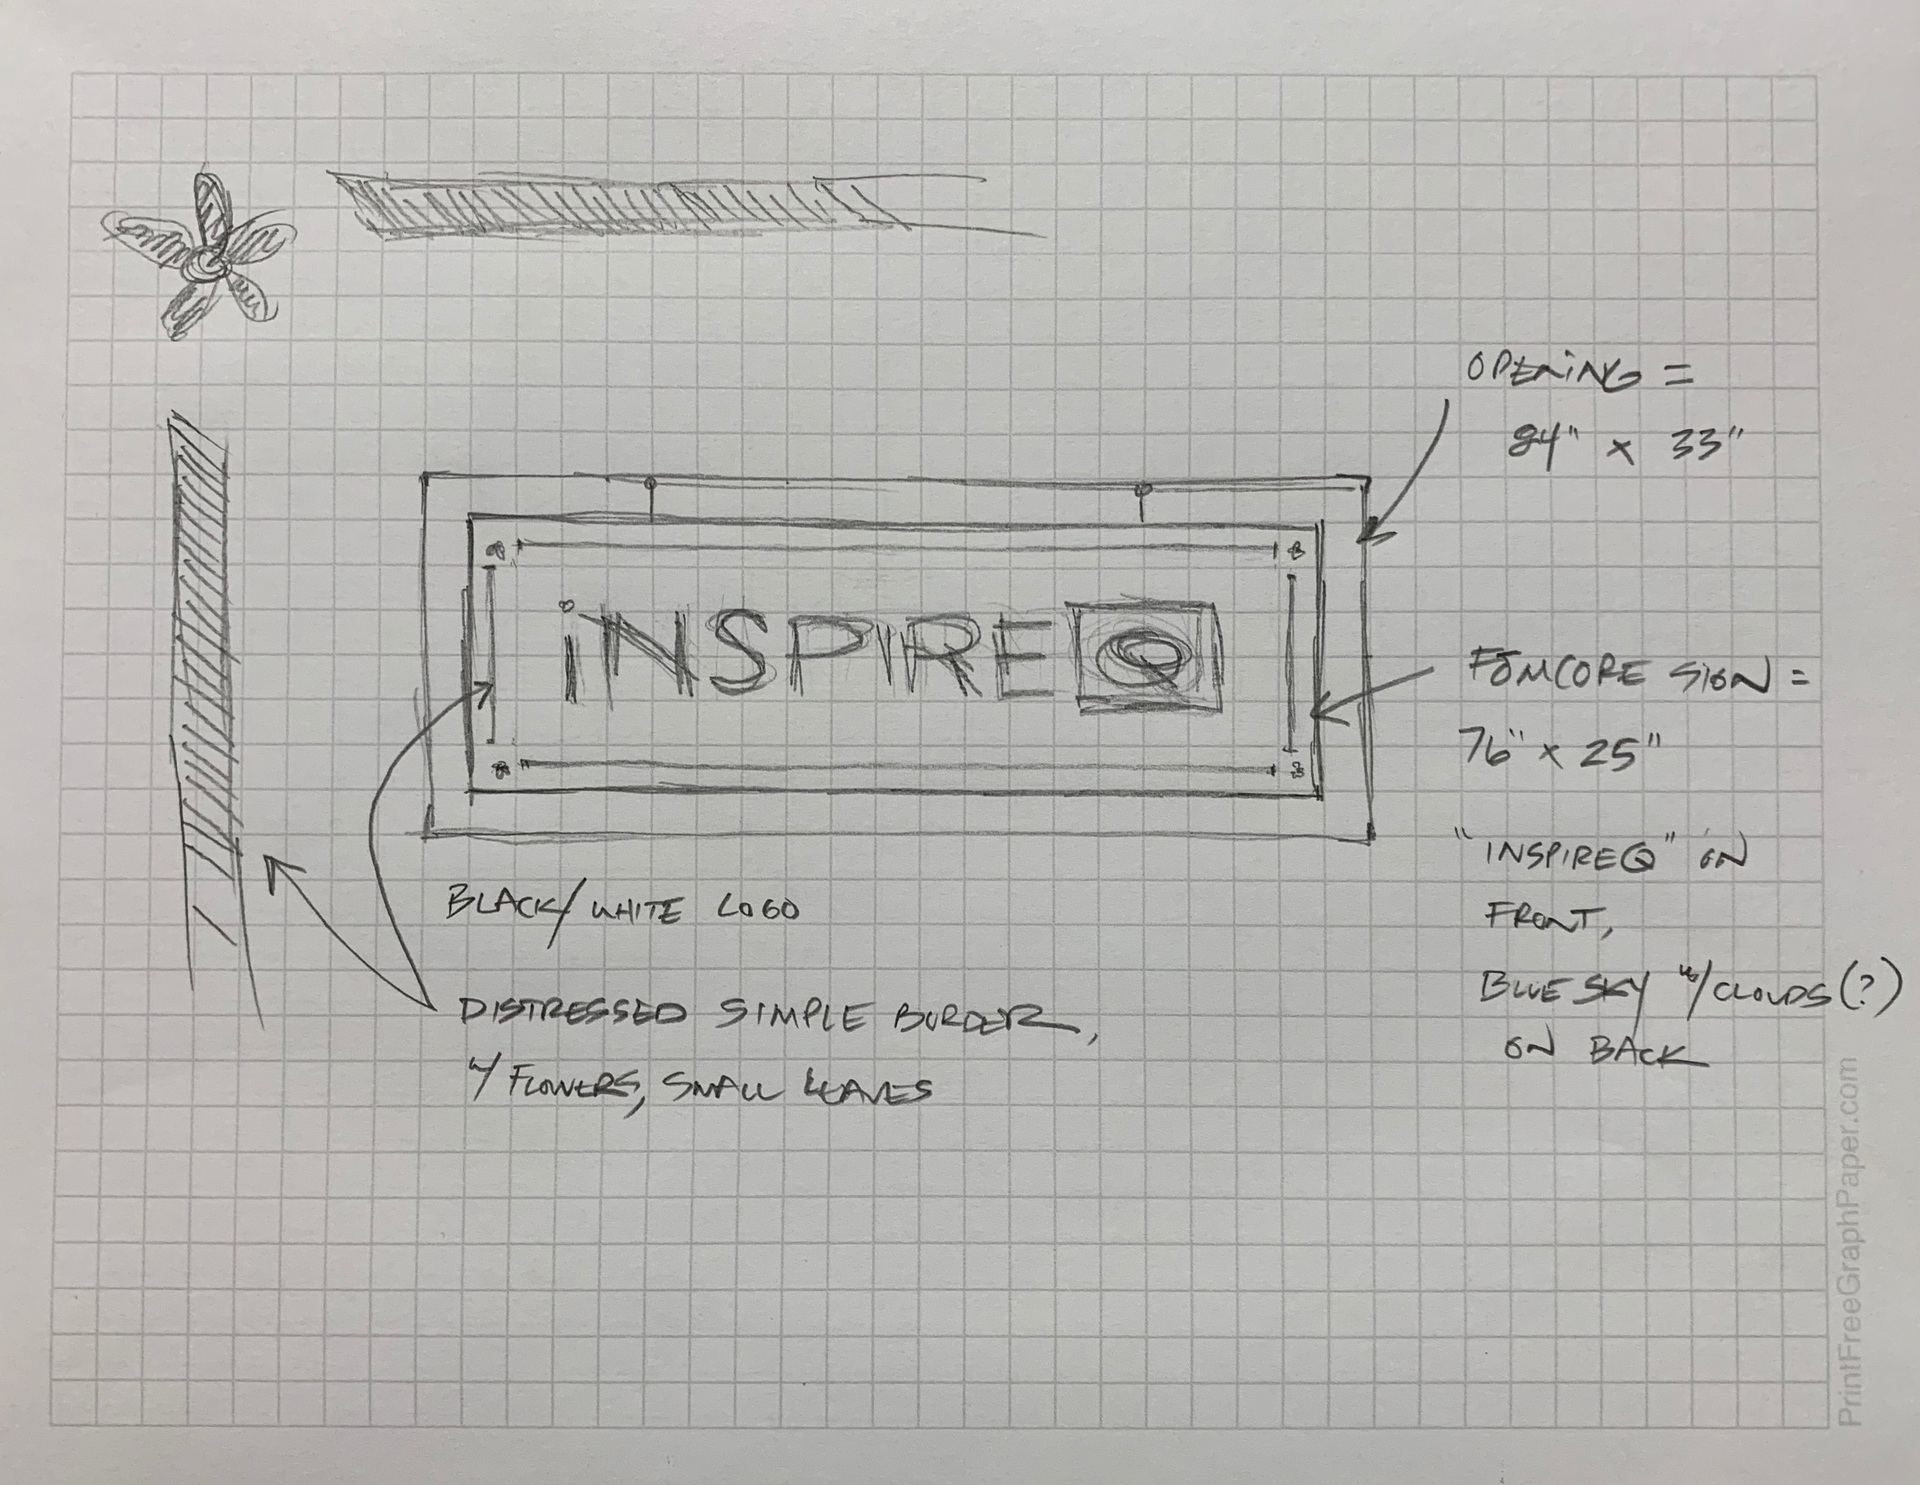 OPENING =
84" x 33"
iNSPIREQ
FOMCORE SIGN =
76" x 25"
"INSPIREQ" ON
FRONT,
BLUE SKY w/ CLOUDS (?)
ON BACK
BLACK/WHITE LOGO
DISTRESSED SIMPLE BORDER,
w/ FLOWERS, SMALL LEAVES
PrintFreeGraphPaper.com